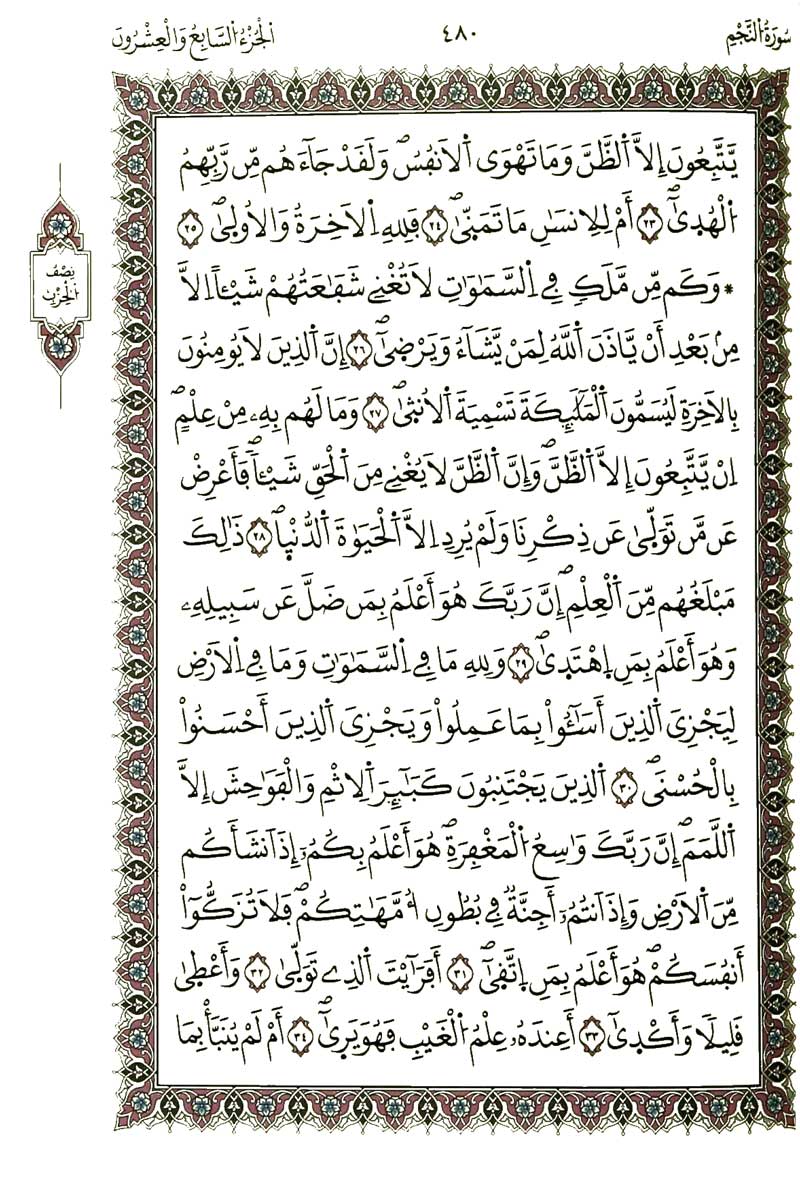 سُورَةُ النَّجْمِ
٤٨٠
الْجُزْءُ السَّابِعُ وَالْعِشْرُونَ
يَّتَّبِعُونَ إِلاَّ اَلظَّنَّ وَمَا تَهْوَى اَلاَنفُسُ وَلَقَدْ جَآءَهُم مِّن رَّبِّهِمُ
اُلْهُد۪ىٰٓ ٢٣ أَمْ لِلِانسَٰنِ مَا تَمَنّ۪ىٰ ٢٤ فَلِلهِ اِلاَخِرَةُ وَالُاول۪ىٰ ٢٥
* وَكَم مِّن مَّلَكٖ فِے اِلسَّمَٰوَٰتِ لَا تُغْنِے شَفَٰعَتُهُمْ شَيْـٔاً اِلاَّ
مِنۢ بَعْدِ أَنْ يَّاذَنَ اَللَّهُ لِمَنْ يَّشَآءُ وَيَرْض۪ىٰٓ ٢٦ إِنَّ اَلذِينَ لَا يُومِنُونَ
بِالاَخِرَةِ لَيُسَمُّونَ اَلْمَلَٰٓئِكَةَ تَسْمِيَةَ اَلُانث۪ىٰ ٢٧ وَمَا لَهُم بِهِۦ مِنْ عِلْمٍ
اِنْ يَّتَّبِعُونَ إِلاَّ اَلظَّنَّ وَإِنَّ اَلظَّنَّ لَا يُغْنِے مِنَ اَلْحَقِّ شَيْـٔاً فَأَعْرِضْ
عَن مَّن تَوَلّ۪ىٰ عَن ذِكْرِنَا وَلَمْ يُرِدِ اِلاَّ اَلْحَيَوٰةَ اَلدُّنْي۪ا ٢٨ ذَٰلِكَ
مَبْلَغُهُم مِّنَ اَلْعِلْمِ إِنَّ رَبَّكَ هُوَ أَعْلَمُ بِمَن ضَلَّ عَن سَبِيلِهِۦ
وَهُوَ أَعْلَمُ بِمَنِ اِهْتَد۪ىٰ ٢٩ وَلِلهِ مَا فِے اِلسَّمَٰوَٰتِ وَمَا فِے اِلاَرْضِ
لِيَجْزِىَ اَلذِينَ أَسَٰٓـُٔواْ بِمَا عَمِلُواْ وَيَجْزِىَ اَلذِينَ أَحْسَنُواْ
بِالْحُسْنَى ٣٠ اَلذِينَ يَجْتَنِبُونَ كَبَٰٓئِرَ اَلِاثْمِ وَالْفَوَٰحِشَ إِلاَّ
اَللَّمَمَ إِنَّ رَبَّكَ وَٰسِعُ اُلْمَغْفِرَةِ هُوَ أَعْلَمُ بِكُمُۥٓ إِذَ اَنشَأَكُم
مِّنَ اَلاَرْضِ وَإِذَ اَنتُمُۥٓ أَجِنَّةٌ فِے بُطُونِ أُمَّهَٰتِكُمْ فَلَا تُزَكُّوٓاْ
أَنفُسَكُمْ هُوَ أَعْلَمُ بِمَنِ اِتَّق۪ىٰٓ ٣١ أَفَرَٰٓيْتَ اَلذِے تَوَلّ۪ىٰ ٣٢ وَأَعْط۪ىٰ
قَلِيلاً وَأَكْد۪ىٰٓ ٣٣ أَعِندَهُۥ عِلْمُ اُلْغَيْبِ فَهُوَ يَر۪ىٰٓ ٣٤ أَمْ لَمْ يُنَبَّأْ بِمَا
نِصْفُ
الْحِزْبِ